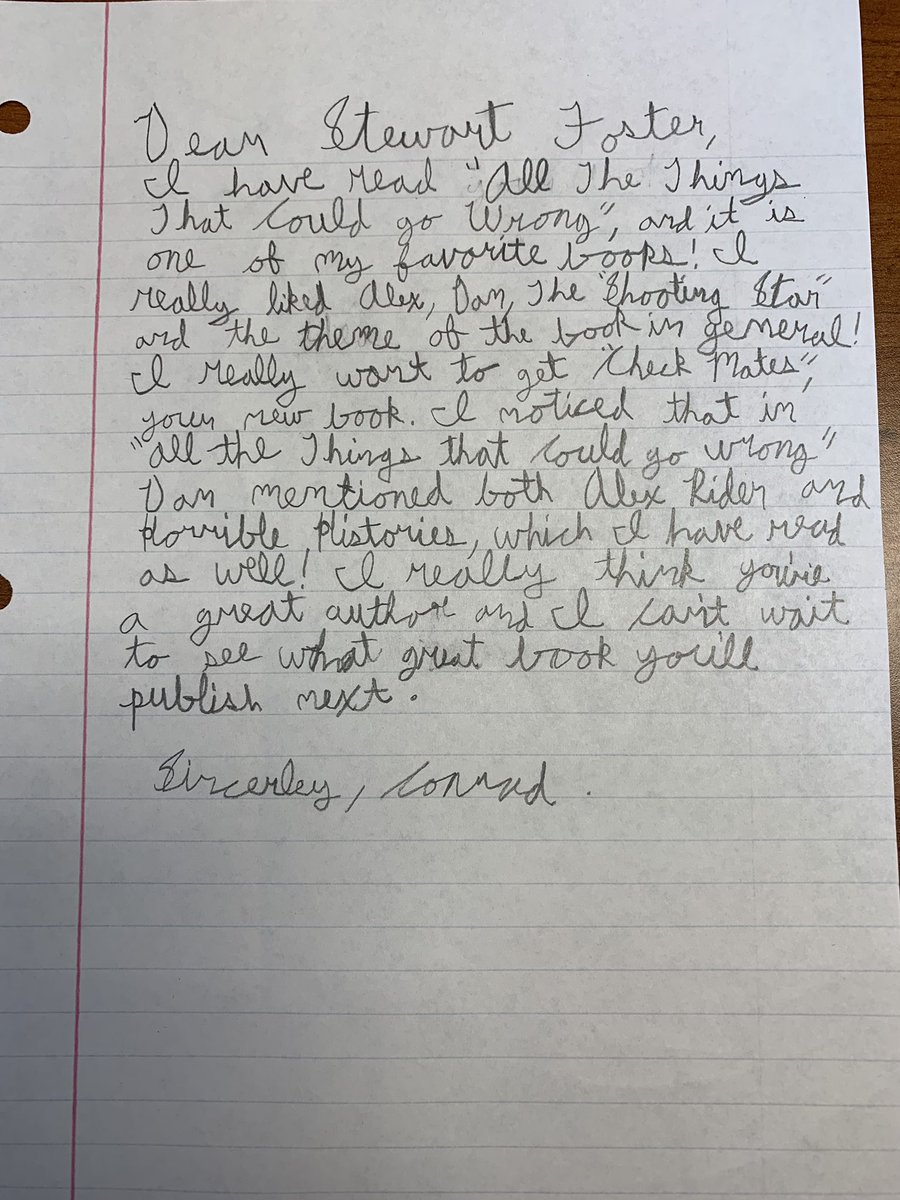 Dear Stewart Foster,
I have read "All The Things
That Could go Wrong", and it is
one of my favorite books! I
really liked Alex, Dan, The "Shooting Star"
and the theme of the book in general!
I really want to get "Check Mates",
your new book. I noticed that in
"all the Things that Could go wrong"
Dan mentioned both Alex Rider and
Horrible Histories, which I have read
as well! I really think you're
a great author and I can't wait
to see what great book you'll
publish next.
Sincerley, Conrad.